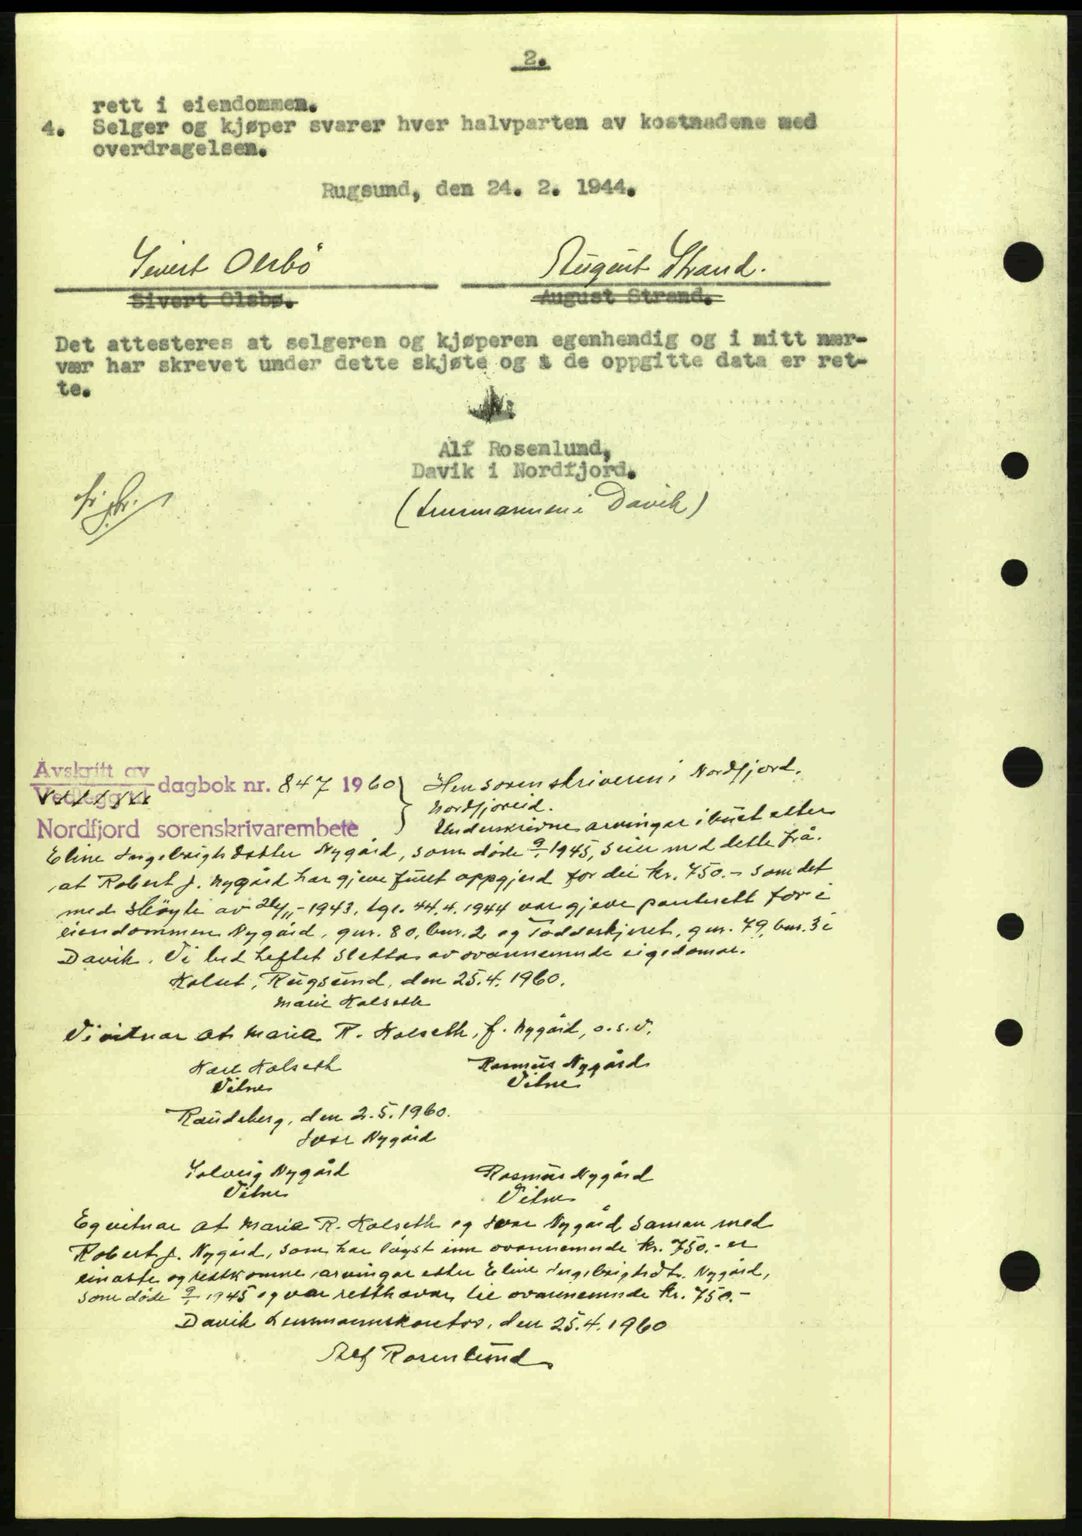 2.
rett i eiendommen.
4. Selger og kjøper svarer hver halvparten av kostnadene med
overdragelsen.
Rugsund, den 24. 2. 1944.
Sivert Olsbö August Strand.
Sivert Olsbø. August Strand.
Det attesteres at selgeren og kjøperen egenhendig og i mitt nær-
vær har skrevet under dette skjøte og at de oppgitte data er ret-
te.
Alf Rosenlund,
Davik i Nordfjord.
(Lensmannen i Davik)
Avskrift av
Vedlegg til dagbok nr. 847 1960
Nordfjord sorenskrivarembete
Herr sorenskriveren i Nordfjord,
Nordfjordeid.
Underskrivne arvingar i buet etter
Eline Ingebrigtsdatter Nygård, som døde 9/1 1945, seier med dette frå.
at Robert J. Nygård har gjeve fullt oppgjerd for dei kr. 750.- som det
med skøyte av 26/11-1943, tgl. 44.4.1944 var gjeve panterett for i
eiendommen Nygård, gnr. 80, bnr. 2 og Toddeskjeret, gnr. 79, bnr. 3 i
Davik. Vi bed heftet slettas av ovannemnde eigedomar.
Kolset, Rugsund, den 25.4.1960.
Marie Kolseth
Vi vitnar at Maria R. Kolseth, f. Nygård, o.s.v.
Karl Kolseth Rasmus Nygård
Vitne Vitne
Raudeberg, den 2.5.1960.
Ivar Nygård
Solveig Nygård Rasmus Nygård
Vitne Vitne
Eg vitnar at Maria R. Kolseth og Ivar Nygård saman med
Robert J. Nygård, som har løyst inn ovannemnde kr. 750.- er
einaste og rettkomne arvingar etter Eline Ingebrigtsdtr. Nygård,
som døde 9/1 1945 og var retthavar til ovannemnde kr. 750.-
Davik Lensmannskontor, den 25.4.1960
Alf Rosenlund